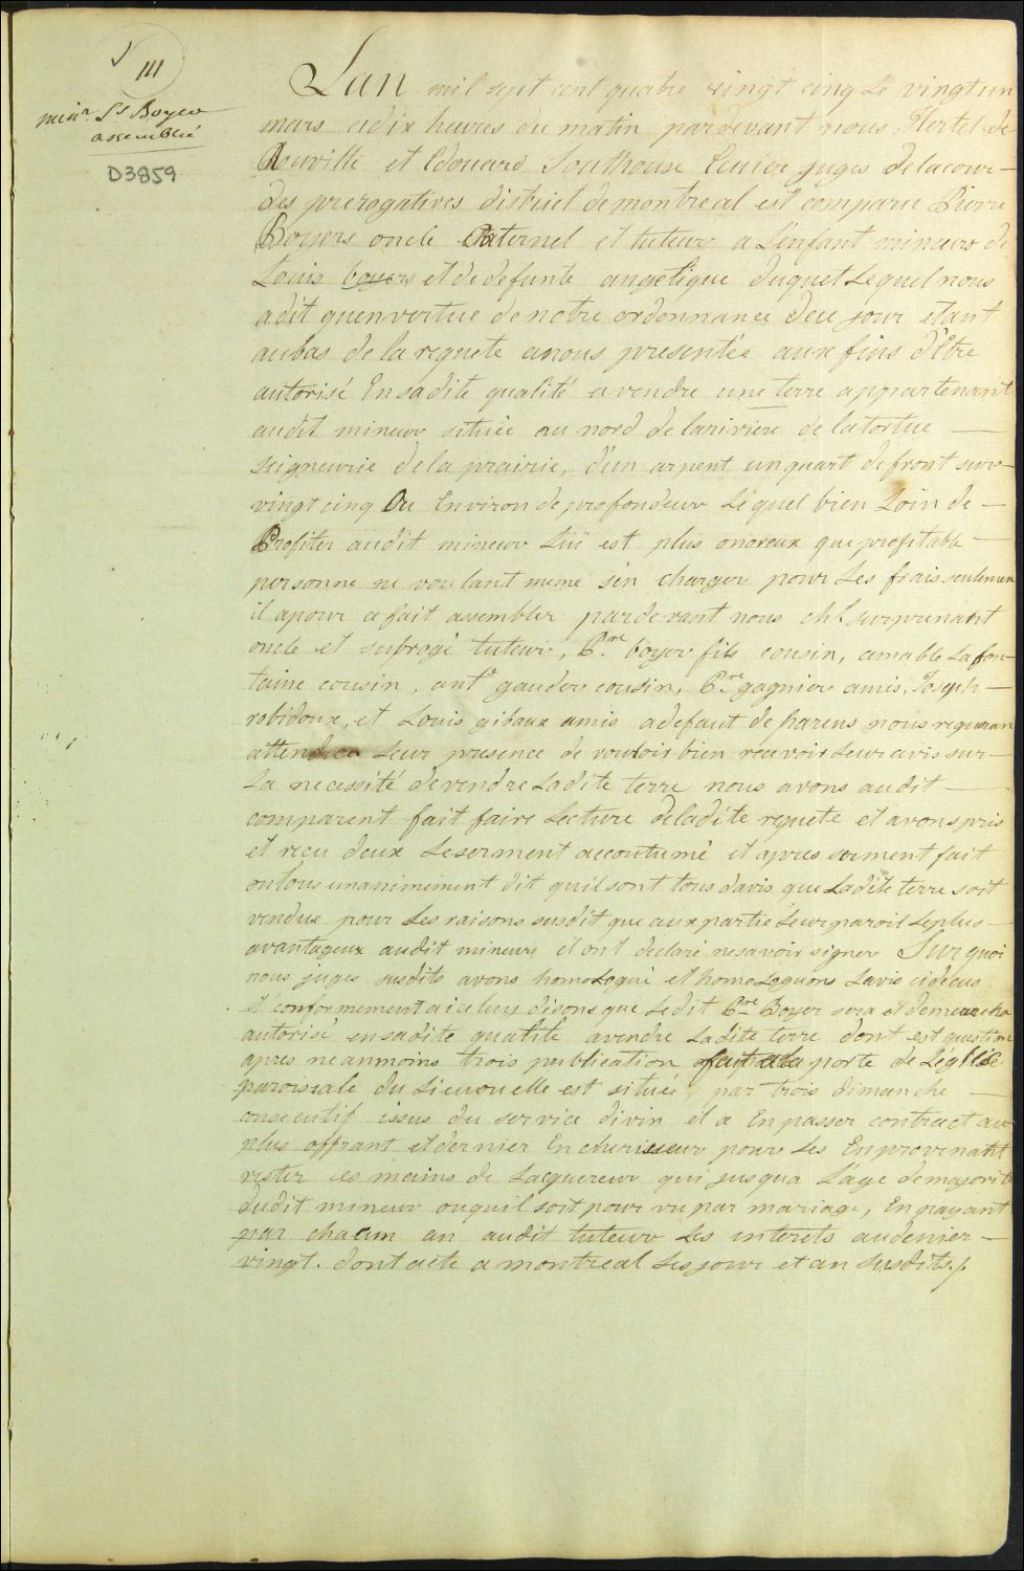 111
min.r Ls Boyer
assemblée
D3859
Lan mil sept cent quatre vingt cinq Le vingt un
mars adix heures du matin pardevant nous Hertel de
Rouville et Edouard Southouse Ecuier juges de la cour
des prerogatives district de montreal est comparu Pierre
Boyers oncle Paternel et tuteur a Lenfant mineur de
Louis boyers et de defunte angelique duquet Lequel nous
adit quenvertue de notre ordonnance dece jour etant
aubas de la requete anous presentée aux fins d'être
autorisé En sadite qualité avendre une terre appartenant
audit mineur située au nord de lariviere de la tortue
seigneurie dela prairie, d'un arpent un quart defront sur
vingt cinq Ou Environ de profondeur Léquel bien Loin de
Profiter audit mineur Lui est plus onoreux que profitable
personne ne voulant meme s'en charger pour Les frais seulemen
il apour ce fait assembler pardevant nous ch.l surprenant
oncle et subrogé tuteur, P.re boyer fils cousin, amable Lafon-
taine cousin, ant.e gauder cousin, P.re gagnier amis, Joseph
robidoux, et Louis gibaux amis adefaut de parens nous requeran
attendu Leur presence de vouloir bien recevoir Leur avis sur
La necessité devendre Ladite terre nous avons audit
comparent fait faire Lecture deladite requete et avons pris
et recu deux Leserment accoutumé et apres serment fait
ontous unanimement dit quil sont tous davis que Ladite terre soit
vendue pour Les raisons susdit que aux partie Leur paroil Leplus
avantageux audit mineure et ont declaré nesavoir signer Sur quoi
nous juges susdits avons homologué et homologuons Lavis cidecus
et conformement a iceluy disons que Ledit P.re Boyer sera et demeurera
autorisé en sadite qualité avendre Ladite terre dont est question
apres neanmoins trois publication fait ala porte de Léglise
paroissiale du Lieu ou elle est situé, par trois dimanche
consecutif issus du service divin et a En passer contract au
plus offrant et dernier Encherisseur pour Les Enprovenant
rester es mains de Lacquereur qui jusqua Lâge demajorité
dudit mineur ouquil soit pour vu par mariage, En payant
par chacun an audit tuteur Les interets audenier
vingt. dont acte a montreal Les jour et an susdits./.